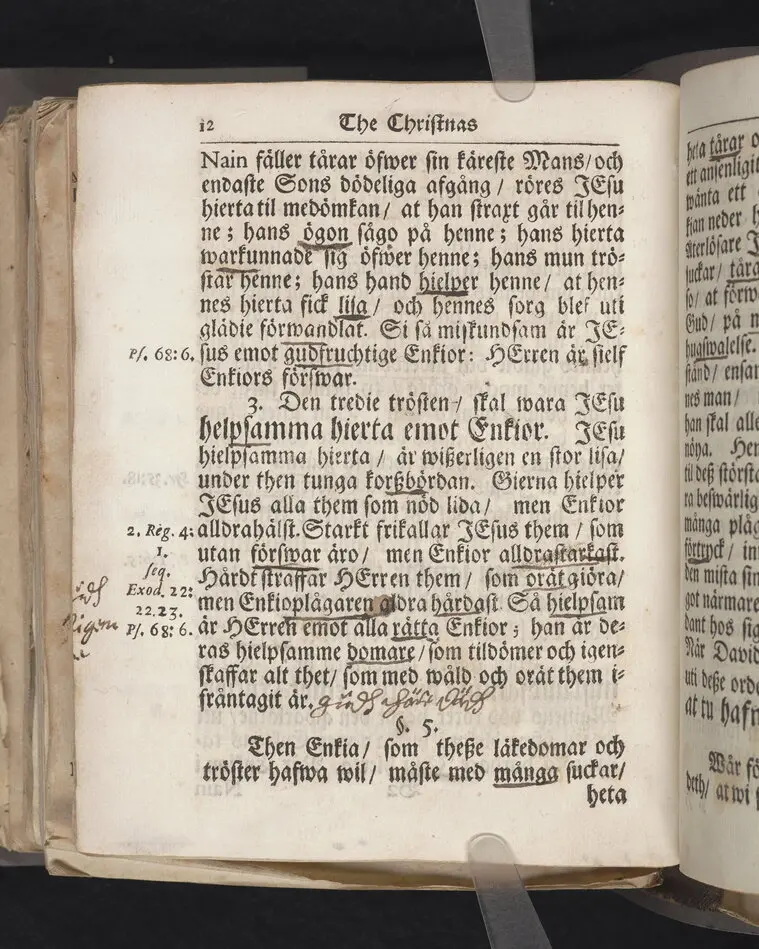 12 The Christnas
Nain fäller tårar öfwer sin käreste Mans/ och
endaste Sons dödeliga afgång / röres JEsu
hierta til medömkan/ at han straxt går til hen-
ne ; hans ögon sågo på henne ; hans hierta
warkunnade sig öfwer henne; hans mun trö-
star henne; hans hand hielper henne/ at hen-
nes hierta fick lisa/ och hennes sorg blef uti
glädie förwandlat. Si så miskundsam är JE-
Ps. 68: 6. sus emot gudfruchtige Enkior: HErren är sielf
Enkiors förswar.
3. Den tredie trösten / skal wara JEsu
helpsamma hierta emot Enkior. JEsu
hielpsamma hierta / är wißerligen en stor lisa/
under then tunga korßbördan. Gierna hielper
JEsus alla them som nöd lida/ men Enkior
2. Reg. 4: alldrahälst. Starkt frikallar JEsus them / som
1. utan förswar äro/ men Enkior alldrastarkast.
seq. Hårdt straffar HErren them/ som orätt giöra/
Exod. 22: men Enkioplågaren aldra hårdast. Så hielpsam
22.23.
Ps. 68: 6. är HErren emot alla rätta Enkior ; han är de-
ras hielpsamme domare/ som tildömer och igen-
skaffar alt thet/ som med wåld och orät them i-
fråntagit är.
§. 5.
Then Enkia/ som theße läkedomar och
tröster hafwa wil/ måste med många suckar/
heta
heta tårar
ett ansenligit
wänta ett
kan neder
återlösare
suckar/ tåra
so/ at förw
Gud/ på
hugswalelse.
stånd/ ensa
nes man/
han skal alle
nöya. Her
til deß störst
ra beswärlig
många plåg
förtryck/ in
den mista sin
got närmare
dant hos sig
När David
uti deße ord
at tu hafw
Wår fö
deth/ at wi